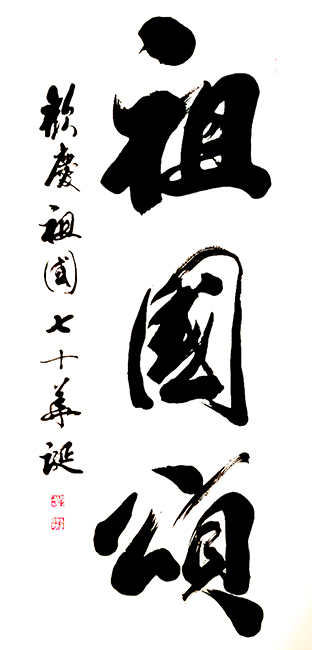 祖國頌
歡慶祖國七十華誕